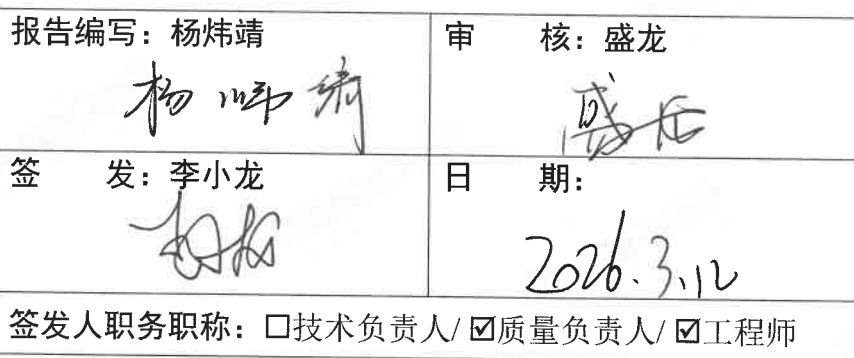 报告编写：杨炜靖
审 核：盛龙
杨炜靖
盛龙
签 发：李小龙
日 期：
2026.3.12
签发人职务职称：☐技术负责人/☑质量负责人/☑工程师